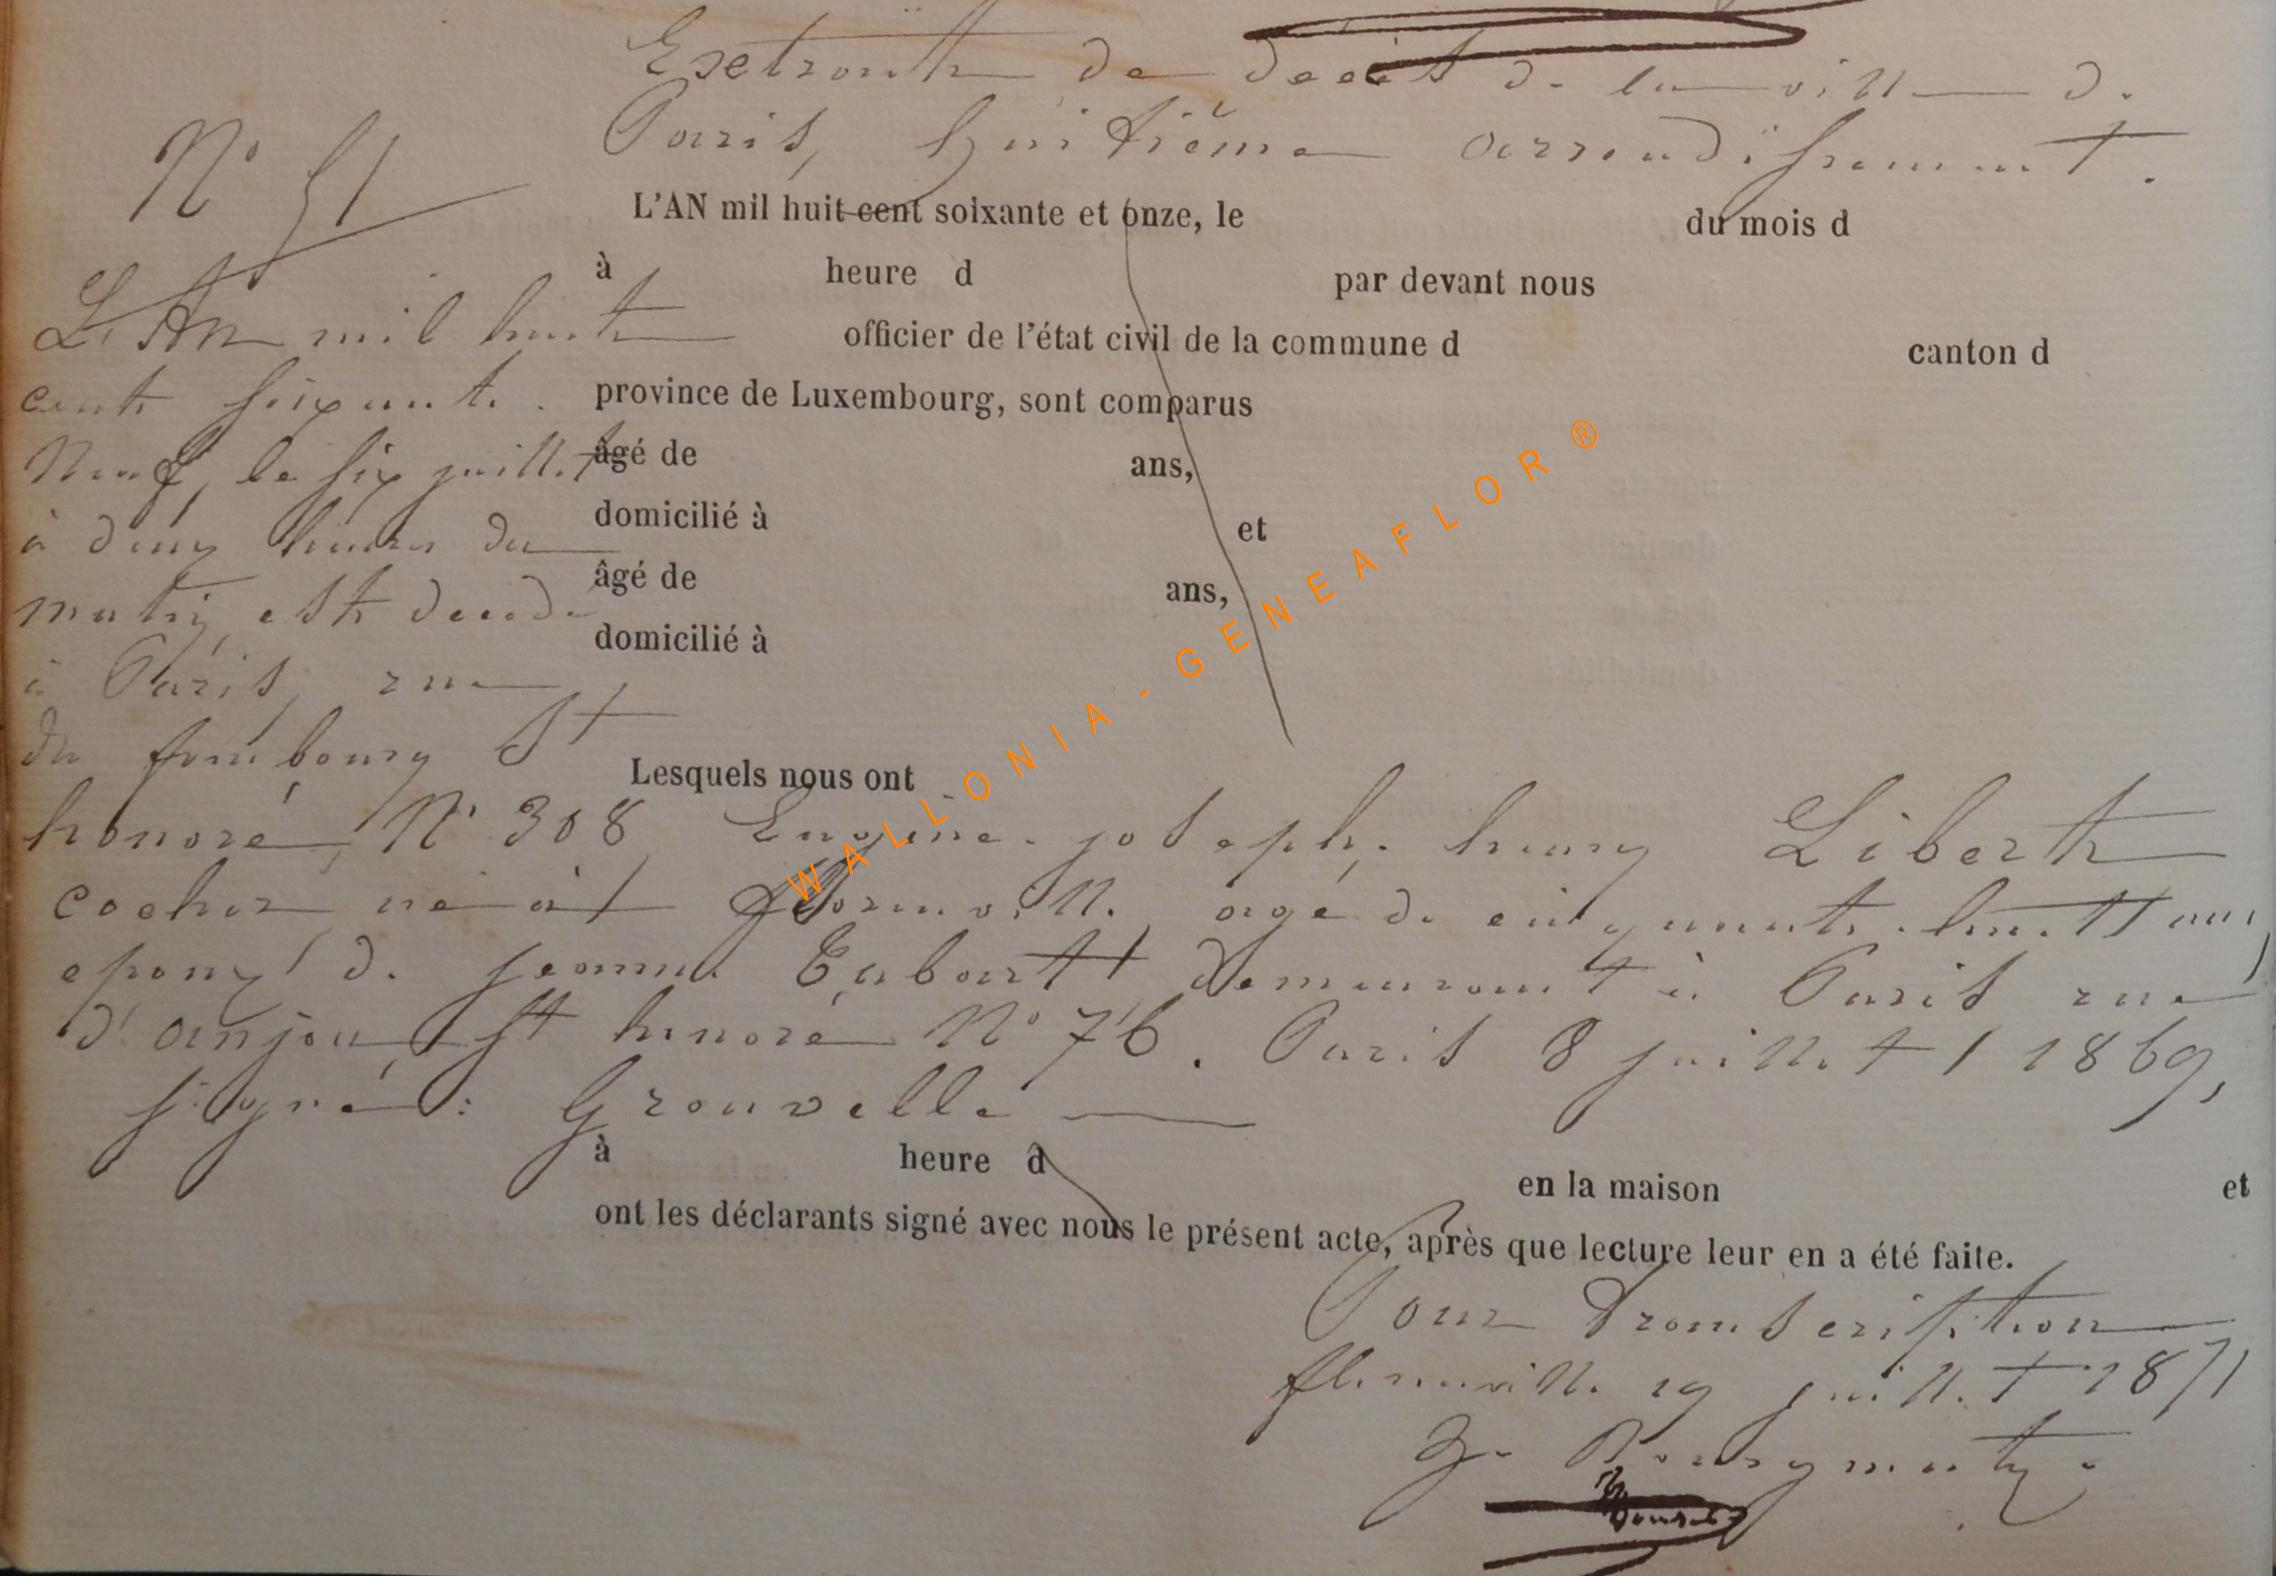 Extrait de décès de la ville de
Paris, huitième arrondissement.
N° 51
L'AN mil huit cent soixante et onze, le du mois d
à heure d par devant nous
officier de l'état civil de la commune d canton d
province de Luxembourg, sont comparus
âgé de ans,
domicilié à et
âgé de ans,
domicilié à
L'An mil huit
cent soixante
Neuf, le six juillet
à deux heures du
matin, est décédé
à Paris, rue
du faubourg St
Lesquels nous ont
honoré, N° 308, Eugène joseph henry Libert
cocher né à florenville âgé de cinquante huit ans,
epoux de jeanne demeurant à Paris rue
d'anjou St honoré N° 76. Paris 8 juillet 1869,
signé: Grouvelle
à heure d en la maison et
ont les déclarants signé avec nous le présent acte, après que lecture leur en a été faite.
Pour Transcription
florenville 19 juillet 1871
Le Bourgmestre
WALLONIA-GENEAFLOR®